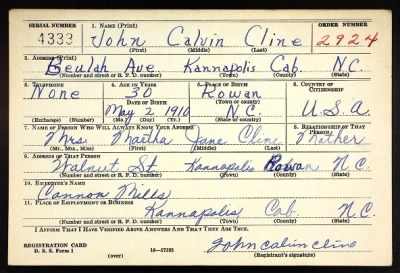 SERIAL NUMBER 1. NAME (Print) ORDER NUMBER
4333 John Calvin Cline 2924
(First) (Middle) (Last)
2. ADDRESS (Print)
Beulah Ave Kannapolis Cab. N.C.
(Number and street or R. F. D. number) (Town) (County) (State)
3. TELEPHONE 4. AGE IN YEARS 5. PLACE OF BIRTH 6. COUNTRY OF CITIZENSHIP
None 30 Rowan
DATE OF BIRTH (Town or county)
May 2 1910 N.C. U.S.A
(Exchange) (Number) (Mo.) (Day) (Yr.) (State or country)
7. NAME OF PERSON WHO WILL ALWAYS KNOW YOUR ADDRESS 8. RELATIONSHIP OF THAT PERSON
Mrs Martha Jane Cline Mother
(Mr., Mrs., Miss) (First) (Middle) (Last)
9. ADDRESS OF THAT PERSON
Walnut St Kannapolis Rowan N.C.
(Number and street or R. F. D. number) (Town) (County) (State)
10. EMPLOYER'S NAME
Cannon Mills
11. PLACE OF EMPLOYMENT OR BUSINESS
Kannapolis Cab. N.C.
(Number and street or R. F. D. number) (Town) (County) (State)
I AFFIRM THAT I HAVE VERIFIED ABOVE ANSWERS AND THAT THEY ARE TRUE.
REGISTRATION CARD John calvin cline
D. S. S. Form 1 (over) 16—17105 (Registrant's signature)